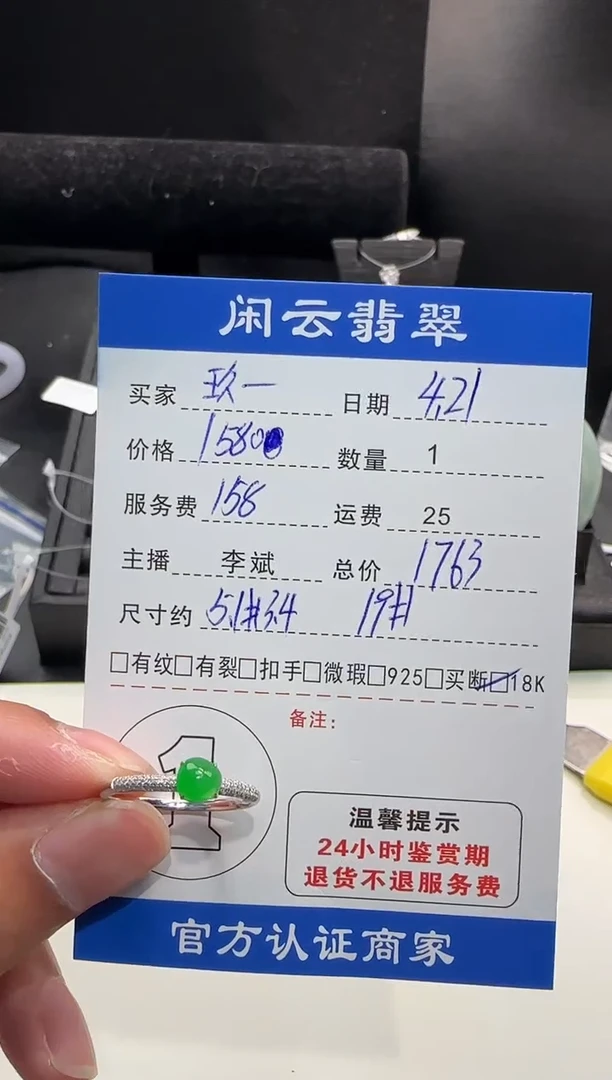 闲云翡翠
买家 玖一 日期 4.21
价格 1580 数量 1
服务费 158 运费 25
主播 李斌 总价 1763
尺寸约 5.1#3.4 19#
□有纹□有裂□扣手□微瑕□925□买断☑18K
备注:
1
温馨提示
24小时鉴赏期
退货不退服务费
官方认证商家